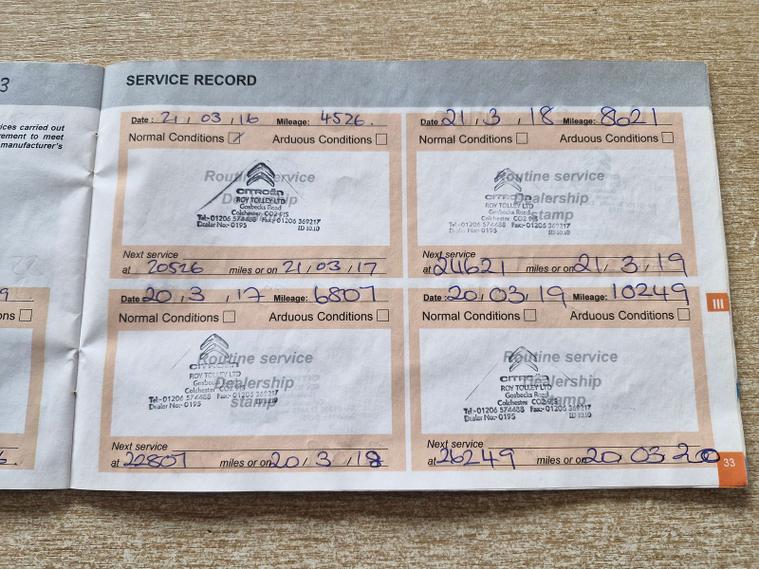 3
SERVICE RECORD
ices carried out
rement to meet
manufacturer's
Date: 21, 03, 16 Mileage: 4526.
Normal Conditions Arduous Conditions
Routine service
Dealership
CITROËN
ROY TOLLEY LTD
Gosbecks Road
Colchester, CO2 9JS
Tel:-01206 574488 Fax:-01206 369217
Dealer No:- 0195 ED 10.10
Next service
at 20526 miles or on 21, 03, 17
Date 21, 3, 18 Mileage: 8621
Normal Conditions Arduous Conditions
Routine service
Dealership
stamp
CITROËN
ROY TOLLEY LTD
Gosbecks Road
Colchester, CO2 9JS
Tel:-01206 574488 Fax:-01206 369217
Dealer No:- 0195 ED 10.10
Next service
at 24621 miles or on 21, 3, 19
9
ns
Date 20, 3, 17 Mileage: 6807
Normal Conditions Arduous Conditions
Routine service
Dealership
stamp
CITROËN
ROY TOLLEY LTD
Gosbecks Road
Colchester, CO2 9JS
Tel:-01206 574488 Fax:-01206 369217
Dealer No:- 0195
Next service
at 22807 miles or on 20, 3, 18
Date: 20, 03, 19 Mileage: 10249
Normal Conditions Arduous Conditions
Routine service
Dealership
stamp
CITROËN
ROY TOLLEY LTD
Gosbecks Road
Colchester, CO2 9JS
Tel:-01206 574488 Fax:-01206 369217
Dealer No:- 0195 ED 10.10
Next service
at 26249 miles or on 20 03 20
III
6.
33